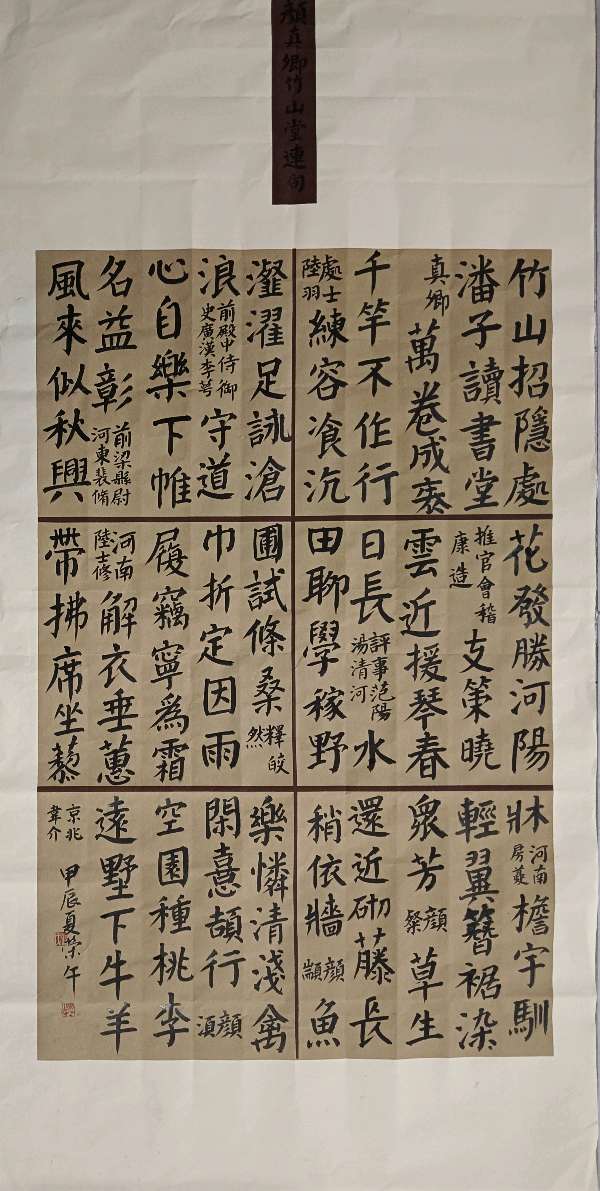 顏真卿竹山堂連句
竹山招隱處
潘子讀書堂
真卿萬卷成袠
千竿不作行
處士陸羽練容飡沆
瀣濯足詠滄
浪前殿中侍御史廣漢李萼守道
心自樂下帷
名益彰前梁縣尉河東裴脩
風來似秋興
花發勝河陽
推官會稽康造支策曉
雲近援琴春
日長評事范陽湯清河水
田聊學稼野
圃試條桑釋皎然
巾折定因雨
履竊寧爲霜
河南陸士修解衣垂蕙
帶拂席坐藜
牀河南房夔檐宇馴
輕翼簪裾染
衆芳顏粲草生
還近砌藤長
稍依牆顏顓魚
樂憐清淺禽
閑憙頡行顏須
空園種桃李
遠墅下牛羊
京兆韋介
甲辰夏榮午